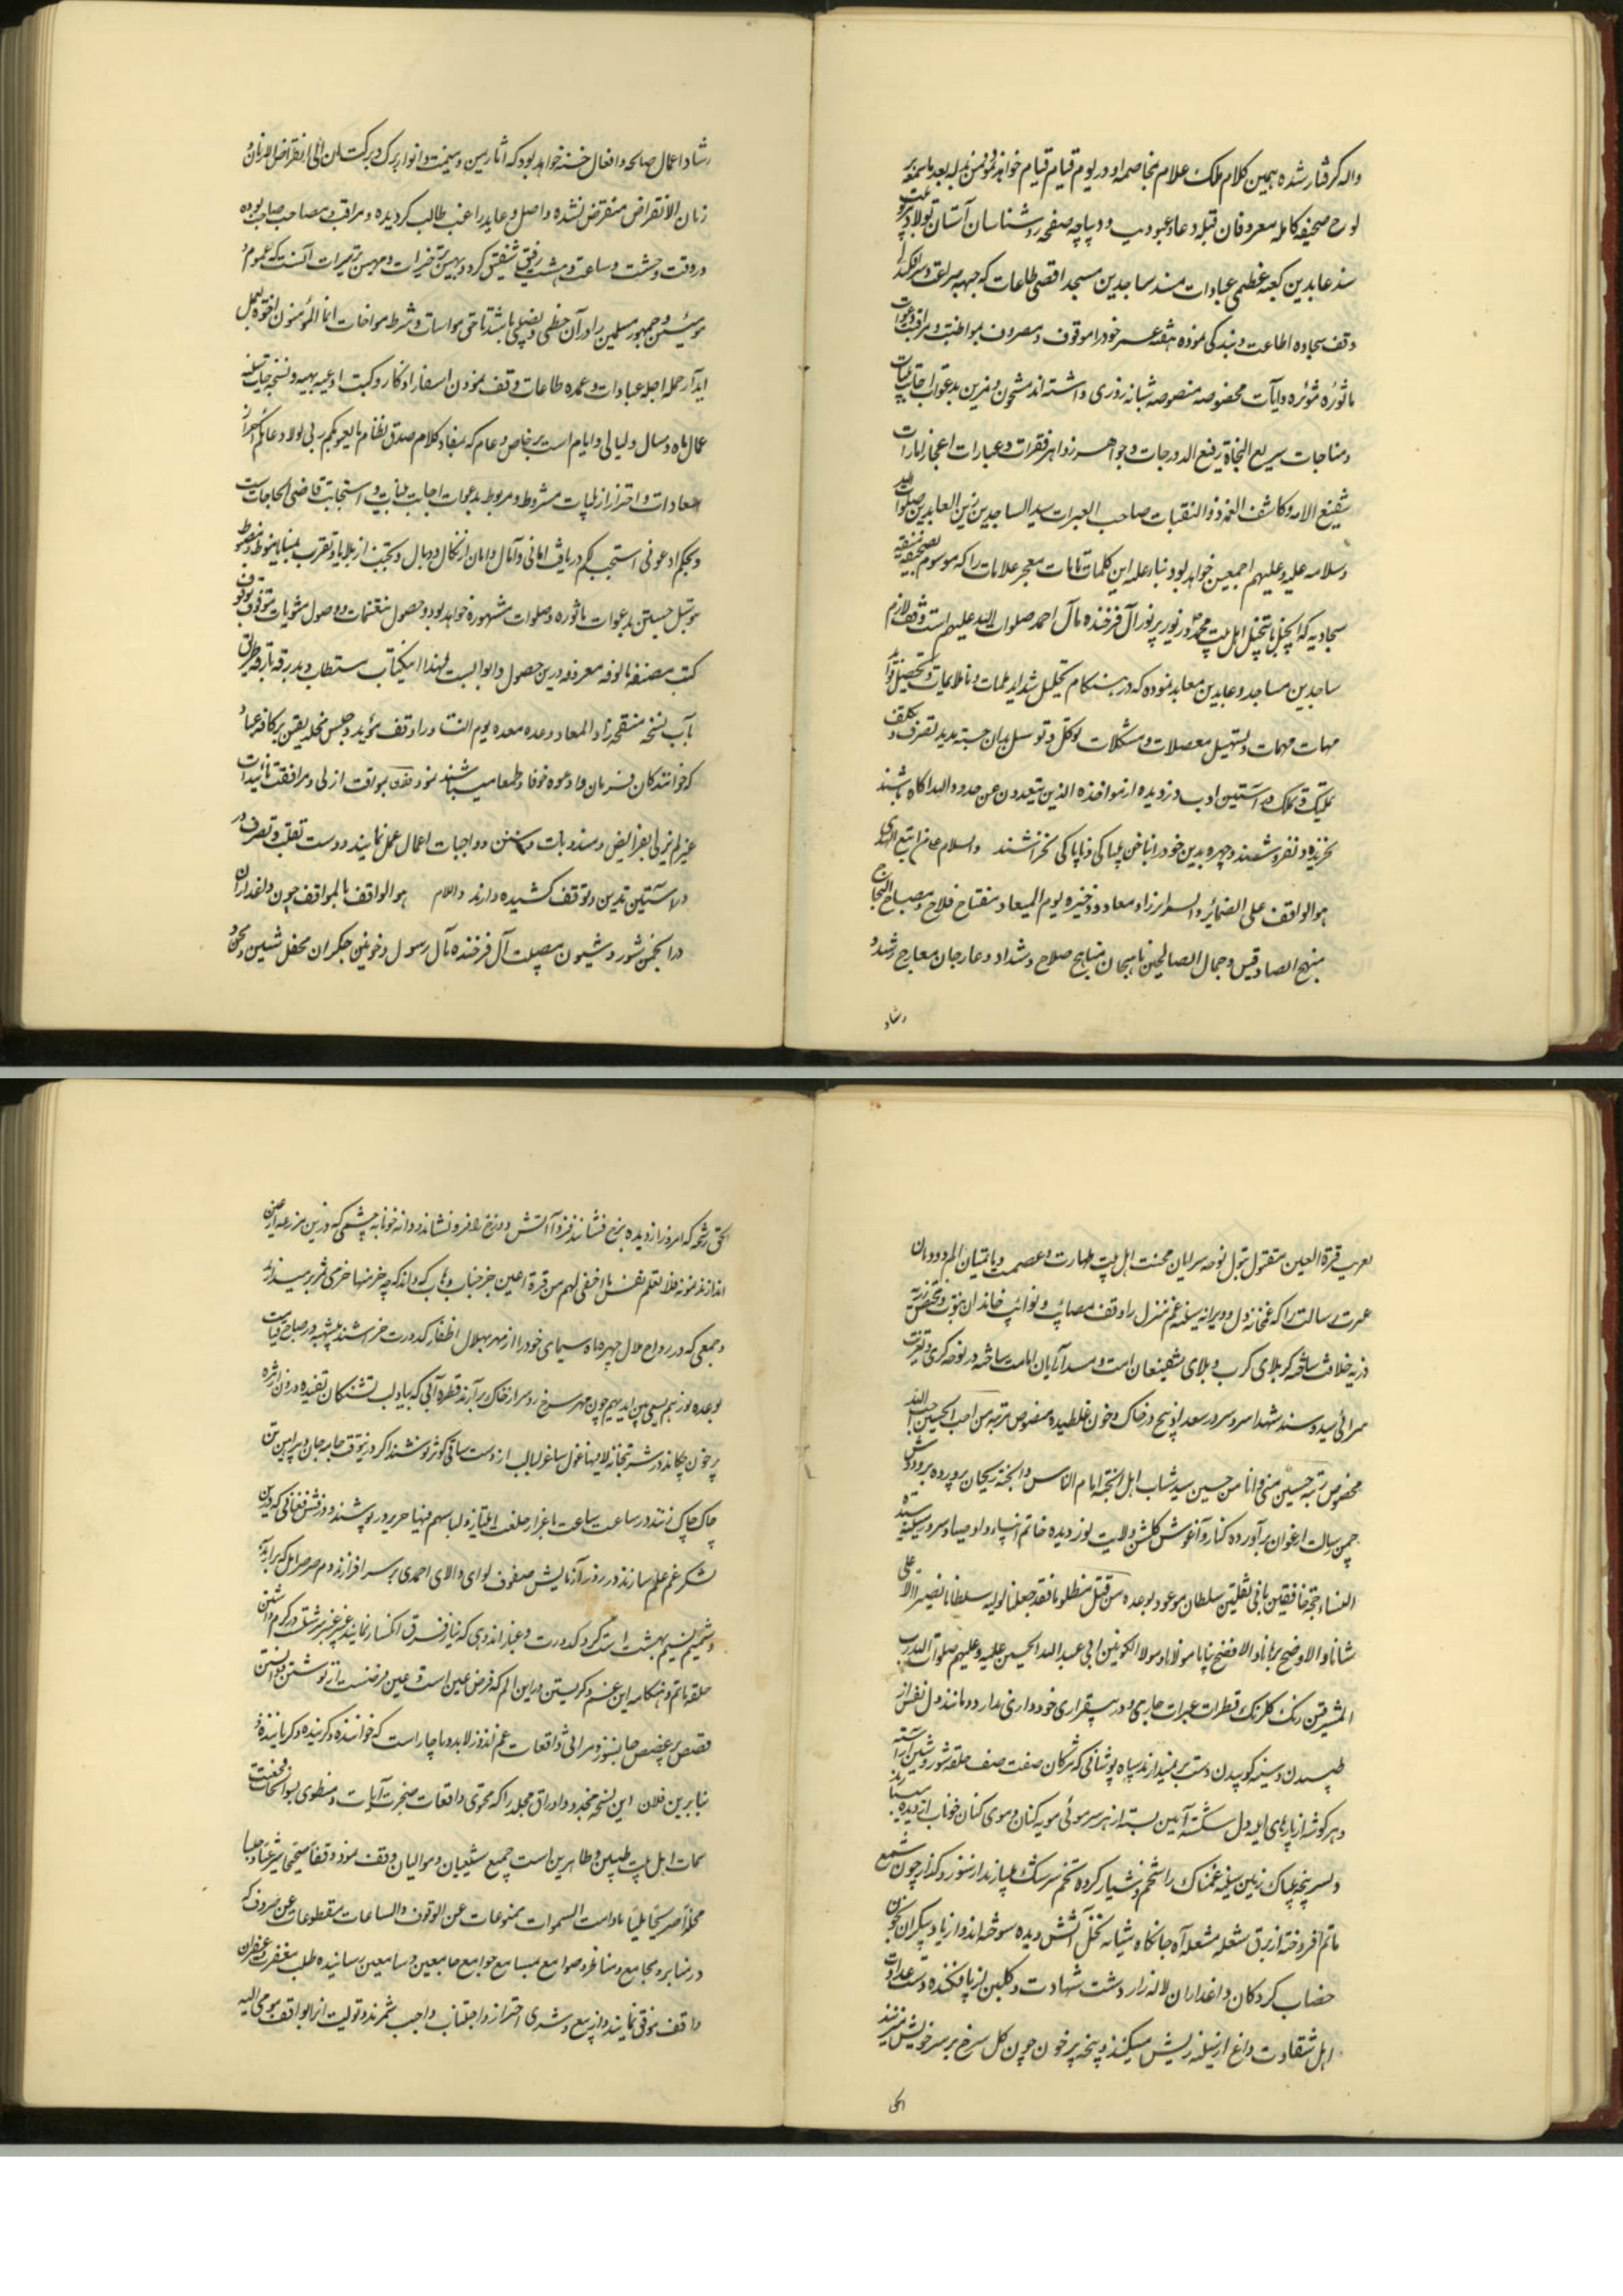 واله گرفتار شده بهمین کلام ملک علام مخاصمه او در یوم قیام قیام خواهد نمود فمن بدله بعد ما سمعه
لوح صحیفه کامله معروفان قبله دعا و عبودیت و دیباچه صفحه روشناسان آستان
سند عابدین کعبه عظمی عبادات مسند ساجدین مسجد اقصی طاعات که جبهه
وقف سجاده اطاعت و بندگی نموده هفته عمر خود را موقوف و مصروف بمواظبت و مراقبت دعوات
ماثوره مؤثره و آیات مخصوصه منصوصه شبانه روزی داشته اند مشحون و مزین بدعوات اجابت
و مناجات سریع النجاة رفیع الدرجات و جواهر زواهر فقرات و عبارات اعجاز امارات
شفیع الامه و کاشف الغمه ذو الثفنات صاحب العبرات سید الساجدین زین العابدین صلوات الله
و سلامه علیه و علیهم اجمعین خواهد بود بناء علیه این کلمات تامات معجز علامات را که موسوم بصحیفه
سجادیه که انجیل اهل بیت محمد و زبور پر نور آل فرخنده مآل احمد صلوات الله علیهم است وقف لازم
ساجدین مساجد و عابدین معابد نموده که در هنگام تحلیل شداید ملمات و ناملایمات و تحصیل
مهمات و تسهیل معضلات و مشکلات توکل و توسل بدان جسته ید تصرف و تکلف
تملیک و تملک در آستین ادب دزدیده از مواخذه الذین یتعدون عن حدود الله آگاه باشند
نخرند و نفروشند و چهره بدین خود را بناخن بیباکی و ناپاکی نخراشند والسلام علی من اتبع الهدی
هو الواقف علی الضمائر و السرایر زاد معاد و ذخیره یوم المیعاد مفتاح فلاح و مصباح النجاح
منهج الصادقین و جمال الصالحین ناهجان مناهج صلاح و سداد و عارجان معارج رشد و
رشاد
رشاد و اعمال صالحه و افعال حسنه خواهد بود که آثار یمن و میمنت و انوار برکت آن الی انقراض الازمان و
زمان الانقراض منقرض نشده و اصل و عاید راغب طالب گردیده و مراقب و مصاحب صاحب بوده
در وقت وحشت و ساعت دهشت رفیق شفیق گردد و بهین خیرات و مهین مبرات آنست که عموم
مؤمنین و جمهور مسلمین را در آن حظی و نصیبی باشد تا حق مواسات و شرط مواخات انما المؤمنون اخوة بعمل
آید از جمله اجله عبادات و عمده طاعات وقف نمودن اسفار اذکار و کتب ادعیه بهیه و نسخه
اعمال ماه و سال و لیالی و ایام است بر خاص و عام که بمفاد کلام صدق نظام ما یعبؤ بکم ربی لولا دعاؤکم
سعادات و احتراز از بلیات مشروط و مربوط بدعوات اجابت و استجابت قاضی الحاجات است
و بحکم ادعونی استجب لکم دریافت امانی و آمال و امان از نکال و وبال و تجنب از بلایا و تقرب منوط
توسل جستن بدعوات ماثوره و صلوات مشهوره خواهد بود و حصول و وصول مثوبات
کتب مصنفه مالوفه معروفه درین حصول و ابوابست لهذا این کتاب مستطاب و بدرقه
باب نسخه منقحه زاد المعاد و عده معده یوم التناد را وقف مؤبد و حبس مخلد بقین بر کافه عباد
که خوانندگان فرمان و ادعوه خوفا و طمعا میباشند نمود بموافقت ازلی و مرافقت تائیدات
عز لم یزلی بفرایض و مندوبات و سنن و واجبات اعمال عمل نمایند و دست تقلب و تصرف
در آستین تدین و توقف کشیده دارند والسلام هو الواقف بالمواقف چون داغداران
در انجمن شور و شیون مصیبت آل فرخنده مآل رسول و خونین جگران محفل شین و
تعزیه قرة العین مقتول بتول نوحه سرایان محنت اهل بیت طهارت و عصمت و ماتمیان الم دودمان
عترت رسالت را که غمخانه دل و ویرانه سینه غم منزل را وقف مصائب و نوائب خاندان
ذریه خلافت ساخته کربلای کرب و بلای شفیعان امت و مسند آرایان امامت ساخته در نوحه گری و تعزیت
مراثی سید و سند شهدا سر و سرور سعدا ذبیح در خاک و خون غلطیده مخصوص مرتبه من احب الحسین احب الله
مخصوص رتبه حسین منی و انا من حسین سید شباب اهل الجنه امام الناس و الجنه ریحان پرورده بر و دوش
چمن رسالت ارغوان برآورده کنار و آغوش گلشن ولایت نور دیده خاتم انبیاء و اوصیاء و سرور سینه سیده
النساء حجة خافقین ثانی ثقلین سلطان موعود بوعده من قتل مظلوما فقد جعلنا لولیه سلطانا نصیرا الاعلی
شانا و الاوضح برهانا و الافصح بیانا مولانا و مولا الکونین ابی عبد الله الحسین علیه و علیهم صلوات الله رب
المشرقین رنگ گلرنگ قطرات عبرات جاری و در بیقراری خودداری ندارد و مانند دل نفس از
طپیدن و سینه کوبیدن دست برنمیدارند سیاه پوشانی که مژگان صفت صف حلقه شور و شین آراسته
و هر گوشه از پارهای دل شکسته آیین بسته از هر سر موئی مویه کنان و موی کنان خوناب از دیده
و بسر پنجه بیباک زمین سینه غمناک را شخم و شیار کرده تخم سرشک میپازند از سوز و گداز چون شمع
ماتم افروخته از برق شعله مشعله آه جانکاه بسان نخل آتش دیده سوخته اند و از یاد پیکران بخون
خضاب کردگان و داغداران لاله زار دشت شهادت و گلبن از پا افکنده دست عداوت
اهل شقاوت داغ از سینه ریش میکنند و پنجه پر خون چون گل سرخ بر سر خویش میزنند
الحق
الحق رشحه که امروز از دیده بر رخ فشانند فردا آتش دوزخ را فرو نشاند و دانه خونابه چشمی که درین مزرعه از عین
اندازند نمونه فلا تعلم نفس ما اخفی لهم من قرة اعین جز جناب وهاب که داند که چه خرمنها خرمی ثمر بر میدارند
و جمعی که در رواح ملال چهره ماه سیمای خود را از مهر بهلال اظفار کدورت خراشند بی شبهه در صباح قیامت
بوعده نورهم یسعی بین ایدیهم چون مهر سرخ رو سر از خاک برآرند قطره آبی که بیاد لب تشنگان تفیده درون از مژه
پر خون چکانند در شربتخانه لا فیها غول ساغر لبالب از دست ساقی کوثر نوشند اگر در جامه جان و پیراهن تن
چاک چاک زنند در ساعت ساعت باعزاز خلعت امتیاز و لباسهم فیها حریر درپوشند و درفش فغانی که درین
لشکر غم علم سازند در روز آزمایش صفوف لوای والای احمدی بر سر افرازند
و شمیم نسیم بهشت است گرد کدورت و غبار اندوهی که نیاز فرق انکسار نمایند
حلقه ماتم و هنگامه این غم و گریستن در این الم که فرض عین است و عین فرضست از نوشتن و دانستن
قصص پر غصص جانسوز و مراثی واقعات غم اندوز لابد و ناچار است که خواننده و گرینده و گریاننده
بنابرین فلان این نسخه مجدد و اوراق مجلد را که محتوی واقعات ضجرت آیات و منطوی بسوانحات محنت
سمات اهل بیت طیبین و طاهرین است جمیع شیعیان و موالیان وقف نمود وقفا صحیحا شرعیا و حبسا
مخلدا صریحا ملیا مادامت السموات ممنوعات عن الوقوف و الساعات مقطوعات عن صروف که
در منابر و مجامع و مناظر و صوامع بمسامع جوامع جامعین و سامعین رسانیده طلب مغفرت و غفران
واقف موفق نمایند و از بیع و شری احتراز و اجتناب واجب شمرند و تولیت انرا بواقف مومی الیه